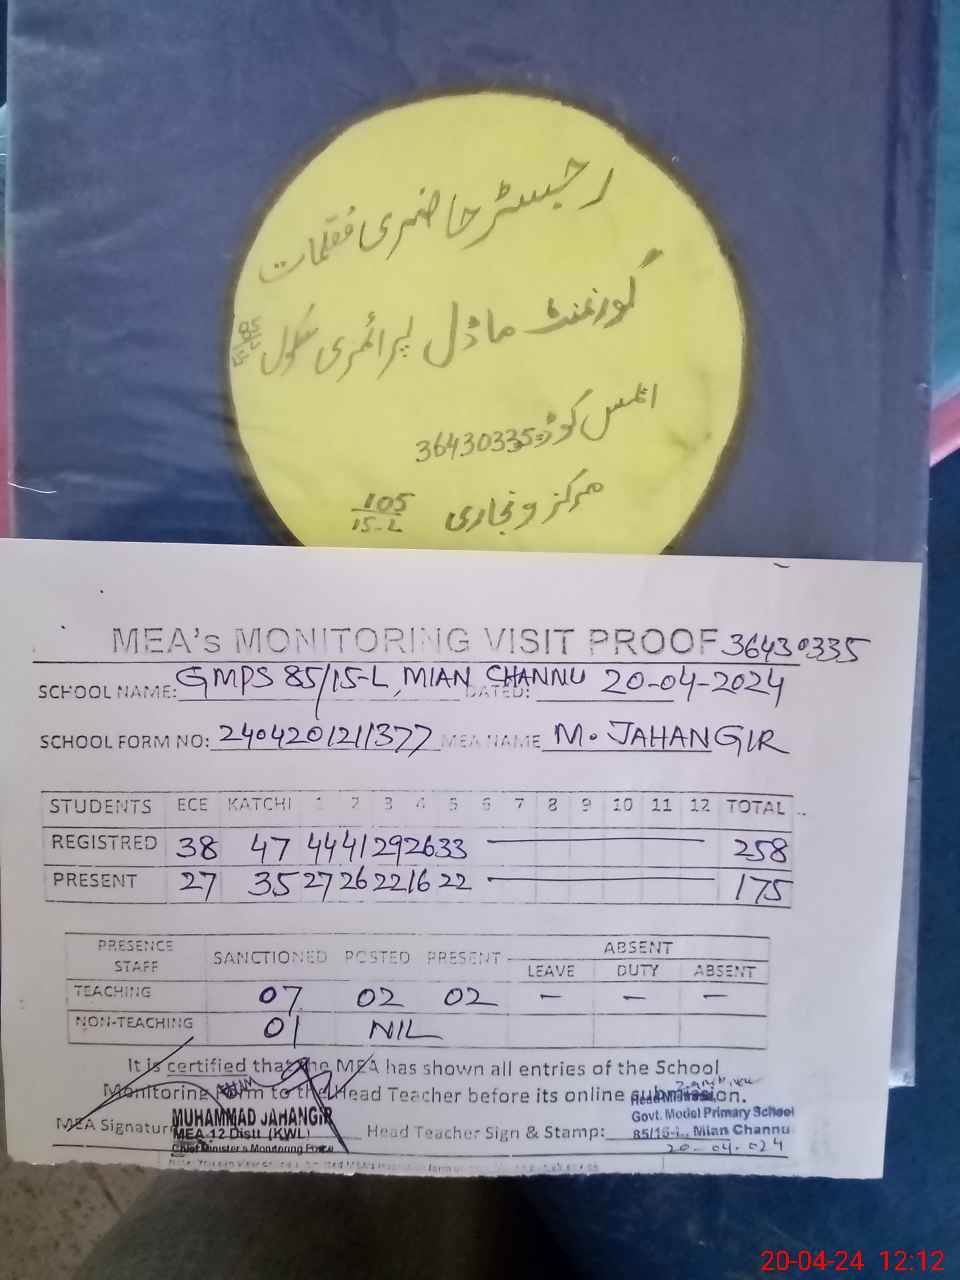 رجسٹر حاضری فقلمات
گورنمنٹ ماڈل پرائمری سکول 85/15-L
ایمس کوڈ: 36430335
مرکز و نجاری 105/15-L
MEA's MONITORING VISIT PROOF 36430335
SCHOOL NAME: GMPS 85/15-L, MIAN CHANNU DATED: 20-04-2024
SCHOOL FORM NO: 2404201211377 MEA NAME M. JAHANGIR
STUDENTS ECE KATCHI 1 2 3 4 5 6 7 8 9 10 11 12 TOTAL
REGISTRED 38 47 44 41 29 26 33 — 258
PRESENT 27 35 27 26 22 16 22 — 175
PRESENCE STAFF SANCTIONED POSTED PRESENT ABSENT
LEAVE DUTY ABSENT
TEACHING 07 02 02 – – –
NON-TEACHING 01 NIL
It is certified that the MEA has shown all entries of the School
Monitoring Form to the Head Teacher before its online submission.
MEA Signature
MUHAMMAD JAHANGIR
MEA-12 Distt. (KWL)
Chief Minister's Monitoring Force
Head Teacher Sign & Stamp:
Govt. Model Primary School
85/15-L, Mian Channu
20-04-024
20-04-24 12:12